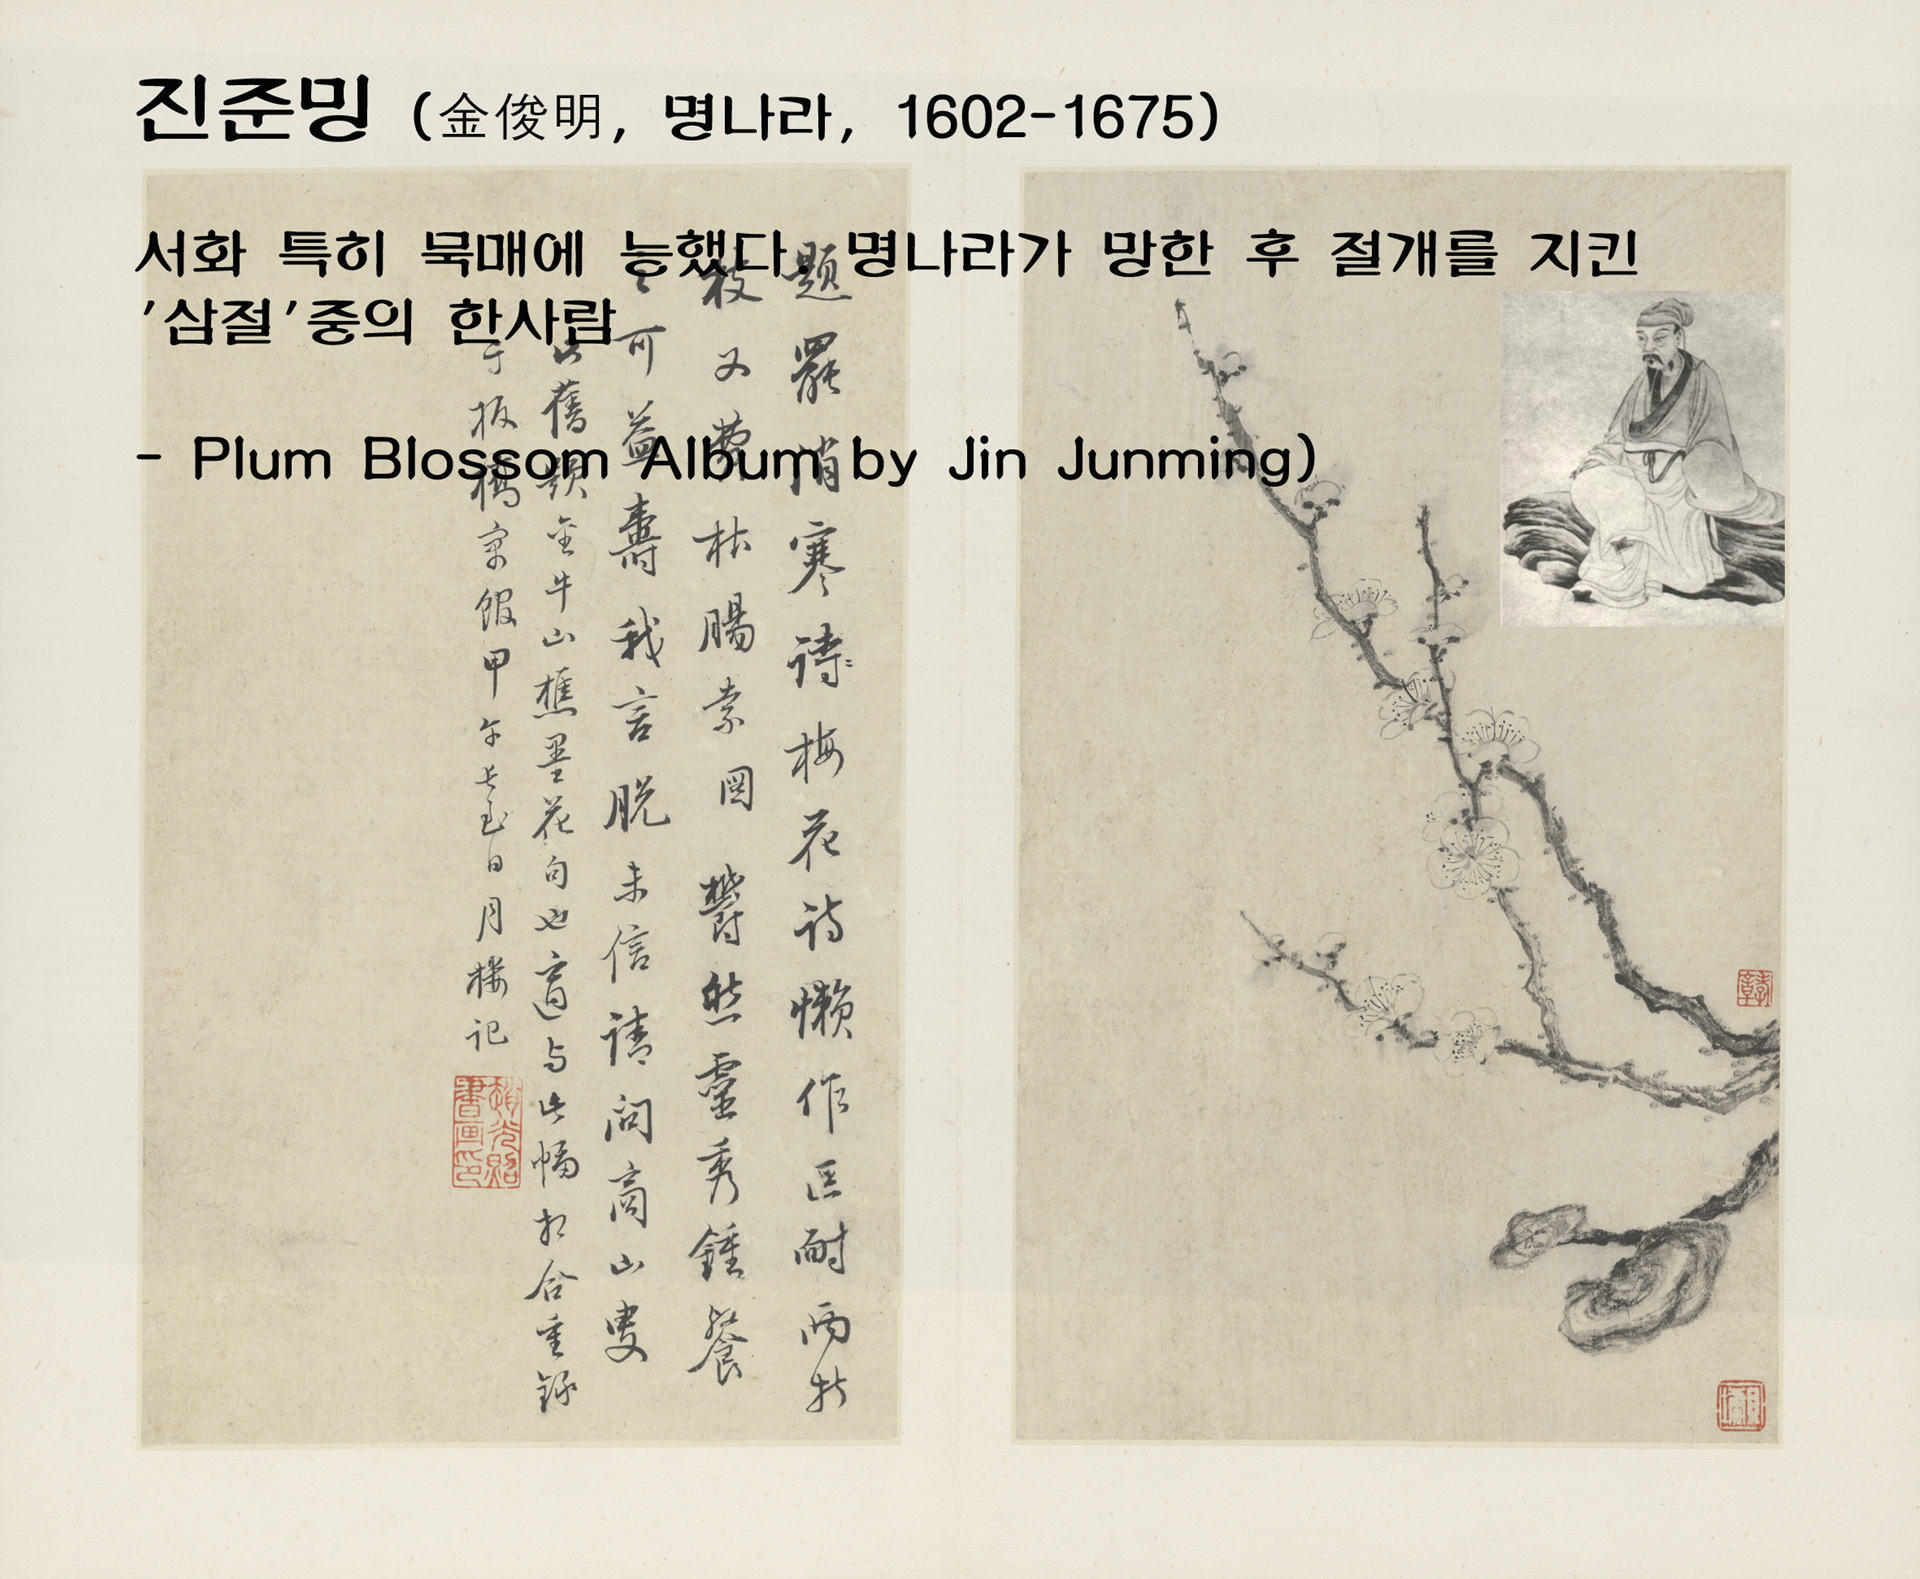 진준밍 (金俊明, 명나라, 1602-1675)
서화 특히 묵매에 능했다. 명나라가 망한 후 절개를 지킨
'삼절'중의 한사람
- Plum Blossom Album by Jin Junming)
題罷消寒詩梅花詩懶作區耐兩打
枝又費枯腸索圖鬱然靈秀鍾餐
可益壽我言脫未信請問商山叟
舊題金牛山樵墨花句也意與此幅相合重錄
于板橋寓館甲午長至日月樓記
趙光照
書画印